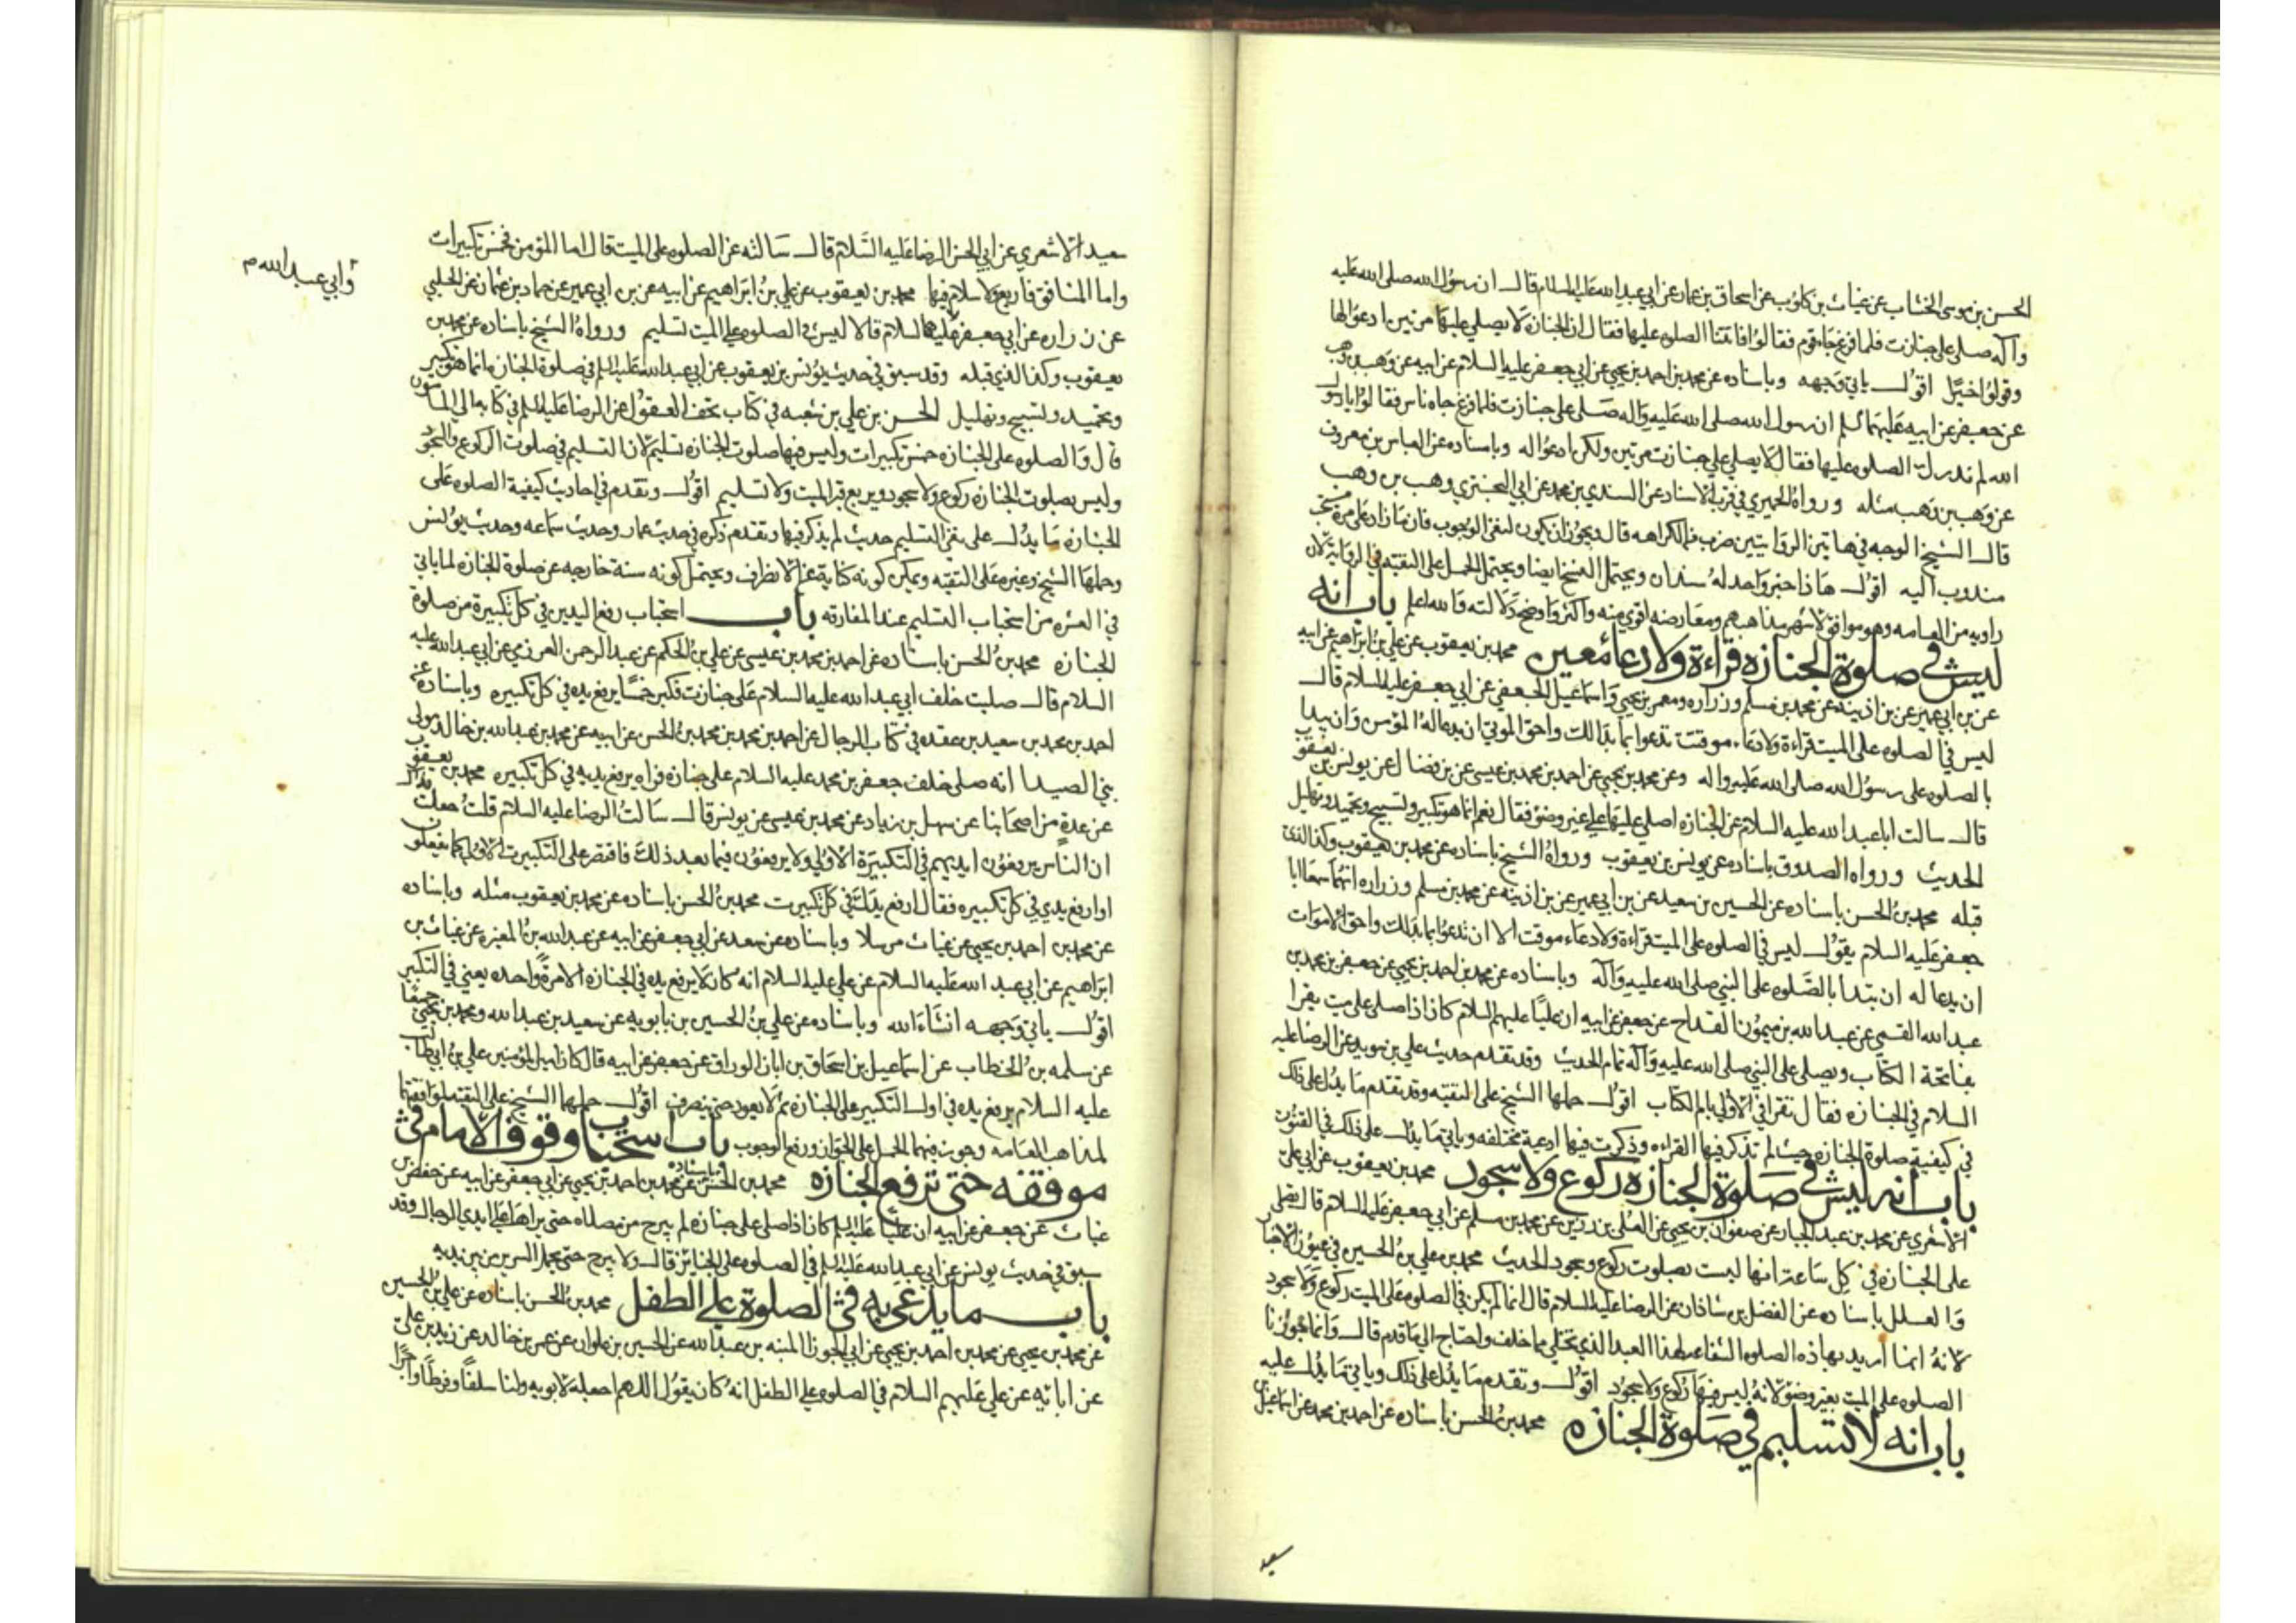 الحسن بن موسى الخشاب عن غياث بن كلوب عن اسحاق بن عمار عن ابي عبد الله عليه السلام قال ان رسول الله صلى الله عليه
وآله صلى على جنازت فلما فرغ جاء قوم فقالوا فاتتنا الصلوه عليها فقال ان الجنازه لا يصلي عليها مرتين ادعوا لها
وقولوا خيرًا اقول ياتي وجهه وباسناده عن محمد بن احمد بن يحيى عن ابي جعفر عليه السلام عن ابيه عن وهب بن وهب
عن جعفر عن ابيه عليهما السلم ان رسول الله صلى الله عليه وآله صلى على جنازت فلما فرغ جاه ناس فقالوا يا رسول
الله لم ندرك الصلوه عليها فقال لا يصلي على جنازت مرتين ولكن ادعوا له وباسناده عن العباس بن معروف
عن وهب بن وهب مثله ورواه الحميري في قرب الاسناد عن السندي بن محمد عن ابي البختري وهب بن وهب
قال الشيخ الوجه في هاتين الروايتين ضرب من الكراهه قال ويجوز ان يكون لنفي الوجوب فان ما زاد على مرة
مندوب اليه اقول هاذا خبر واحد له سندان ويحتمل النسخ ايضا ويحتمل الحمل على التقيه في الرواية لان
راويه من العامه وهو موافق لاشهر مذاهبهم ومعارضه اقوى منه واكثر واوضح دلالته والله اعلم باب انه
ليس في صلوة الجنازه قراءة ولا دعاء معين محمد بن يعقوب عن علي بن ابراهيم عن ابيه
عن بن ابي عمير عن بن اذينه عن محمد بن مسلم وزراره ومعمر بن يحيى واسماعيل الجعفي عن ابي جعفر عليه السلام قال
ليس في الصلوه على الميت قراءة ولا دعاء موقت تدعوا بما بدا لك واحق الموتي ان يدعا له المؤمن وان يبدا
بالصلوه على رسول الله صلى الله عليه واله وعن محمد بن يحيى عن احمد بن محمد بن عيسى عن بن فضال عن يونس بن يعقوب
قال سالت ابا عبد الله عليه السلام عن الجنازه اصلي عليها على غير وضؤ فقال نعم انما هو تكبير وتسبيح وتحميد وتهليل
الحديث ورواه الصدوق باسناده عن يونس بن يعقوب ورواه الشيخ باسناده عن محمد بن يعقوب وكذا الذي
قبله محمد بن الحسن باسناده عن الحسين بن سعيد عن بن ابي عمير عن بن اذينه عن محمد بن مسلم وزراره انهما سمعا ابا
جعفر عليه السلام يقول ليس في الصلوه على الميت قراءة ولا دعاء موقت الا ان تدعوا بما بدا لك واحق الاموات
ان يدعا له ان يبتدأ بالصلوه على النبي صلى الله عليه وآله وباسناده عن محمد بن احمد بن يحيى عن جعفر بن محمد بن
عبد الله القمي عن عبد الله بن ميمون القداح عن جعفر عن ابيه ان عليًا عليهم السلام كان اذا صلى على ميت يقرا
بفاتحة الكتاب ويصلى على النبي صلى الله عليه وآله تمام الحديث وقد تقدم حديث علي بن سويد عن الرضا عليه
السلام في الجنازه فقال تقرا في الاولى بام الكتاب اقول حملها الشيخ على التقيه وقد تقدم ما يدل على ذلك
في كيفية صلوة الجنازه حيث لم تذكر فيها القراءه وذكرت فيها ادعية مختلفه وياتي ما يدل على ذلك في القنوت
باب انه ليس في صلوة الجنازه ركوع ولا سجود محمد بن يعقوب عن ابي علي
الاشعري عن محمد بن عبد الجبار عن صفوان بن يحيى عن العلى بن رزين عن محمد بن مسلم عن ابي جعفر عليه السلام قال يصلى
على الجنازه في كل ساعة انها ليست بصلوت ركوع وسجود الحديث محمد بن علي بن الحسين في عيون الاخبار
والعلل باسناده عن الفضل بن شاذان عن الرضا عليه السلام قال انما لم يكن في الصلوه على الميت ركوع ولا سجود
لانه انما اريد بهاذه الصلوه الشفاعه لهذا العبد الذي تخلي مما خلف واحتاج الى ما قدم قال وانما جوزنا
الصلوه على الميت بغير وضؤ لانه ليس فيها ركوع ولا سجود اقول وتقدم ما يدل على ذلك وياتي ما يدل عليه
باب انه لا تسليم في صلوة الجنازه محمد بن الحسن باسناده عن احمد بن محمد عن اسماعيل بن
سعيد
سعيد الاشعري عن ابي الحسن الرضا عليه السلام قال سالته عن الصلوه على الميت قال اما المؤمن فخمس تكبيرات
واما المنافق فاربع ولا سلام فيها محمد بن يعقوب عن علي بن ابراهيم عن ابيه عن بن ابي عمير عن حماد بن عثمان عن الحلبي
وابي عبد الله م
عن زراره عن ابي جعفر عليهما السلام قالا ليس في الصلوه على الميت تسليم ورواه الشيخ باسناده عن محمد بن
يعقوب وكذا الذي قبله وقد سبق في حديث يونس بن يعقوب عن ابي عبد الله عليه السلم في صلوة الجنازه انما هو تكبير
وتحميد وتسبيح وتهليل الحسن بن علي بن شعبه في كتاب تحف العقول عن الرضا عليه السلم في كتابه الى المامون
قال والصلوه على الجنازه خمس تكبيرات وليس فيها صلوت الجنازه تسليم لان التسليم في صلوت الركوع والسجود
وليس بصلوت الجنازه ركوع ولا سجود ويربع قبر الميت ولا تسليم اقول وتقدم في احاديث كيفية الصلوه على
الجنازه ما يدل على نفي التسليم حديث لم يذكر فيها وتقدم ذكره في حديث عمار وحديث سماعه وحديث يونس
وحملها الشيخ وغيره على التقيه ويمكن كونه كناية عن الانظراف ويحتمل كونه سنة خارجه عن صلوة الجنازه لما ياتي
في العشره من استحباب التسليم عند المفارقه باب استحباب رفع اليدين في كل تكبيرة من صلوة
الجنازه محمد بن الحسن باسناده عن احمد بن محمد بن عيسى عن علي بن الحكم عن عبد الرحمن العرزمي عن ابي عبد الله عليه
السلام قال صليت خلف ابي عبد الله عليه السلام على جنازت فكبر خمسًا يرفع يده في كل تكبيره وباسناده عن
احمد بن محمد بن سعيد بن عقده في كتاب الرجال عن احمد بن محمد بن محمد بن الحسن عن ابيه عن محمد بن عبد الله بن خالد مولى
بني الصيدا انه صلى خلف جعفر بن محمد عليه السلام على جنازه فراه يرفع يديه في كل تكبيره محمد بن يعقوب
عن عدة من اصحابنا عن سهل بن زياد عن محمد بن عيسى عن يونس قال سالت الرضا عليه السلام قلت جعلت فداك
ان الناس يرفعون ايديهم في التكبيرة الاولى ولا يرفعون فيما بعد ذلك فاقتصر على التكبيرت الاولى كما يفعلون
او ارفع يدي في كل تكبيره فقال ارفع يدك في كل تكبيرت محمد بن الحسن باسناده عن محمد بن يعقوب مثله وباسناده
عن محمد بن احمد بن يحيى عن غياث مرسلا وباسناده عن سعد عن ابي جعفر عن ابيه عن عبد الله بن المغيره عن غياث بن
ابراهيم عن ابي عبد الله عليه السلام عن علي عليه السلام انه كان لا يرفع يده في الجنازه الا مرةً واحده يعني في التكبير
اقول ياتي وجهه انشاء الله وباسناده عن علي بن الحسين بن بابويه عن سعيد بن عبد الله ومحمد بن يحيى جميعًا
عن سلمه بن الخطاب عن اسماعيل بن اسحاق بن ابان الوراق عن جعفر عن ابيه قال كان امير المؤمنين علي بن ابي طالب
عليه السلام يرفع يده في اول التكبير على الجنازه ثم لا يعود حتى ينصرف اقول حملها الشيخ على التقيه لموافقتها
لمذاهب العامه وجوز فيهما الحمل على الجواز ورفع الوجوب باب استحباب وقوف الامام في
موقفه حتى ترفع الجنازه محمد بن الحسن باسناده عن محمد بن احمد بن يحيى عن ابي جعفر عن ابيه عن حفص بن
غياث عن جعفر عن ابيه ان عليًا عليه السلم كان اذا صلى على جنازه لم يبرح من مصلاه حتى يراها على ايدي الرجال وقد
سبق في حديث يونس عن ابي عبد الله عليه السلم في الصلوه على الجنائز قال ولا يبرح حتى يحمل السرير من بين يديه
باب ما يدعى به في الصلوة على الطفل محمد بن الحسن باسناده عن علي بن الحسين
عن محمد بن يحيى عن محمد بن احمد بن يحيى عن ابي الجوزا المنبه بن عبد الله عن الحسين بن علوان عن عمرو بن خالد عن زيد بن علي
عن ابائه عن علي عليهم السلام في الصلوه على الطفل انه كان يقول اللهم اجعله لابويه ولنا سلفًا وفرطًا واجرًا